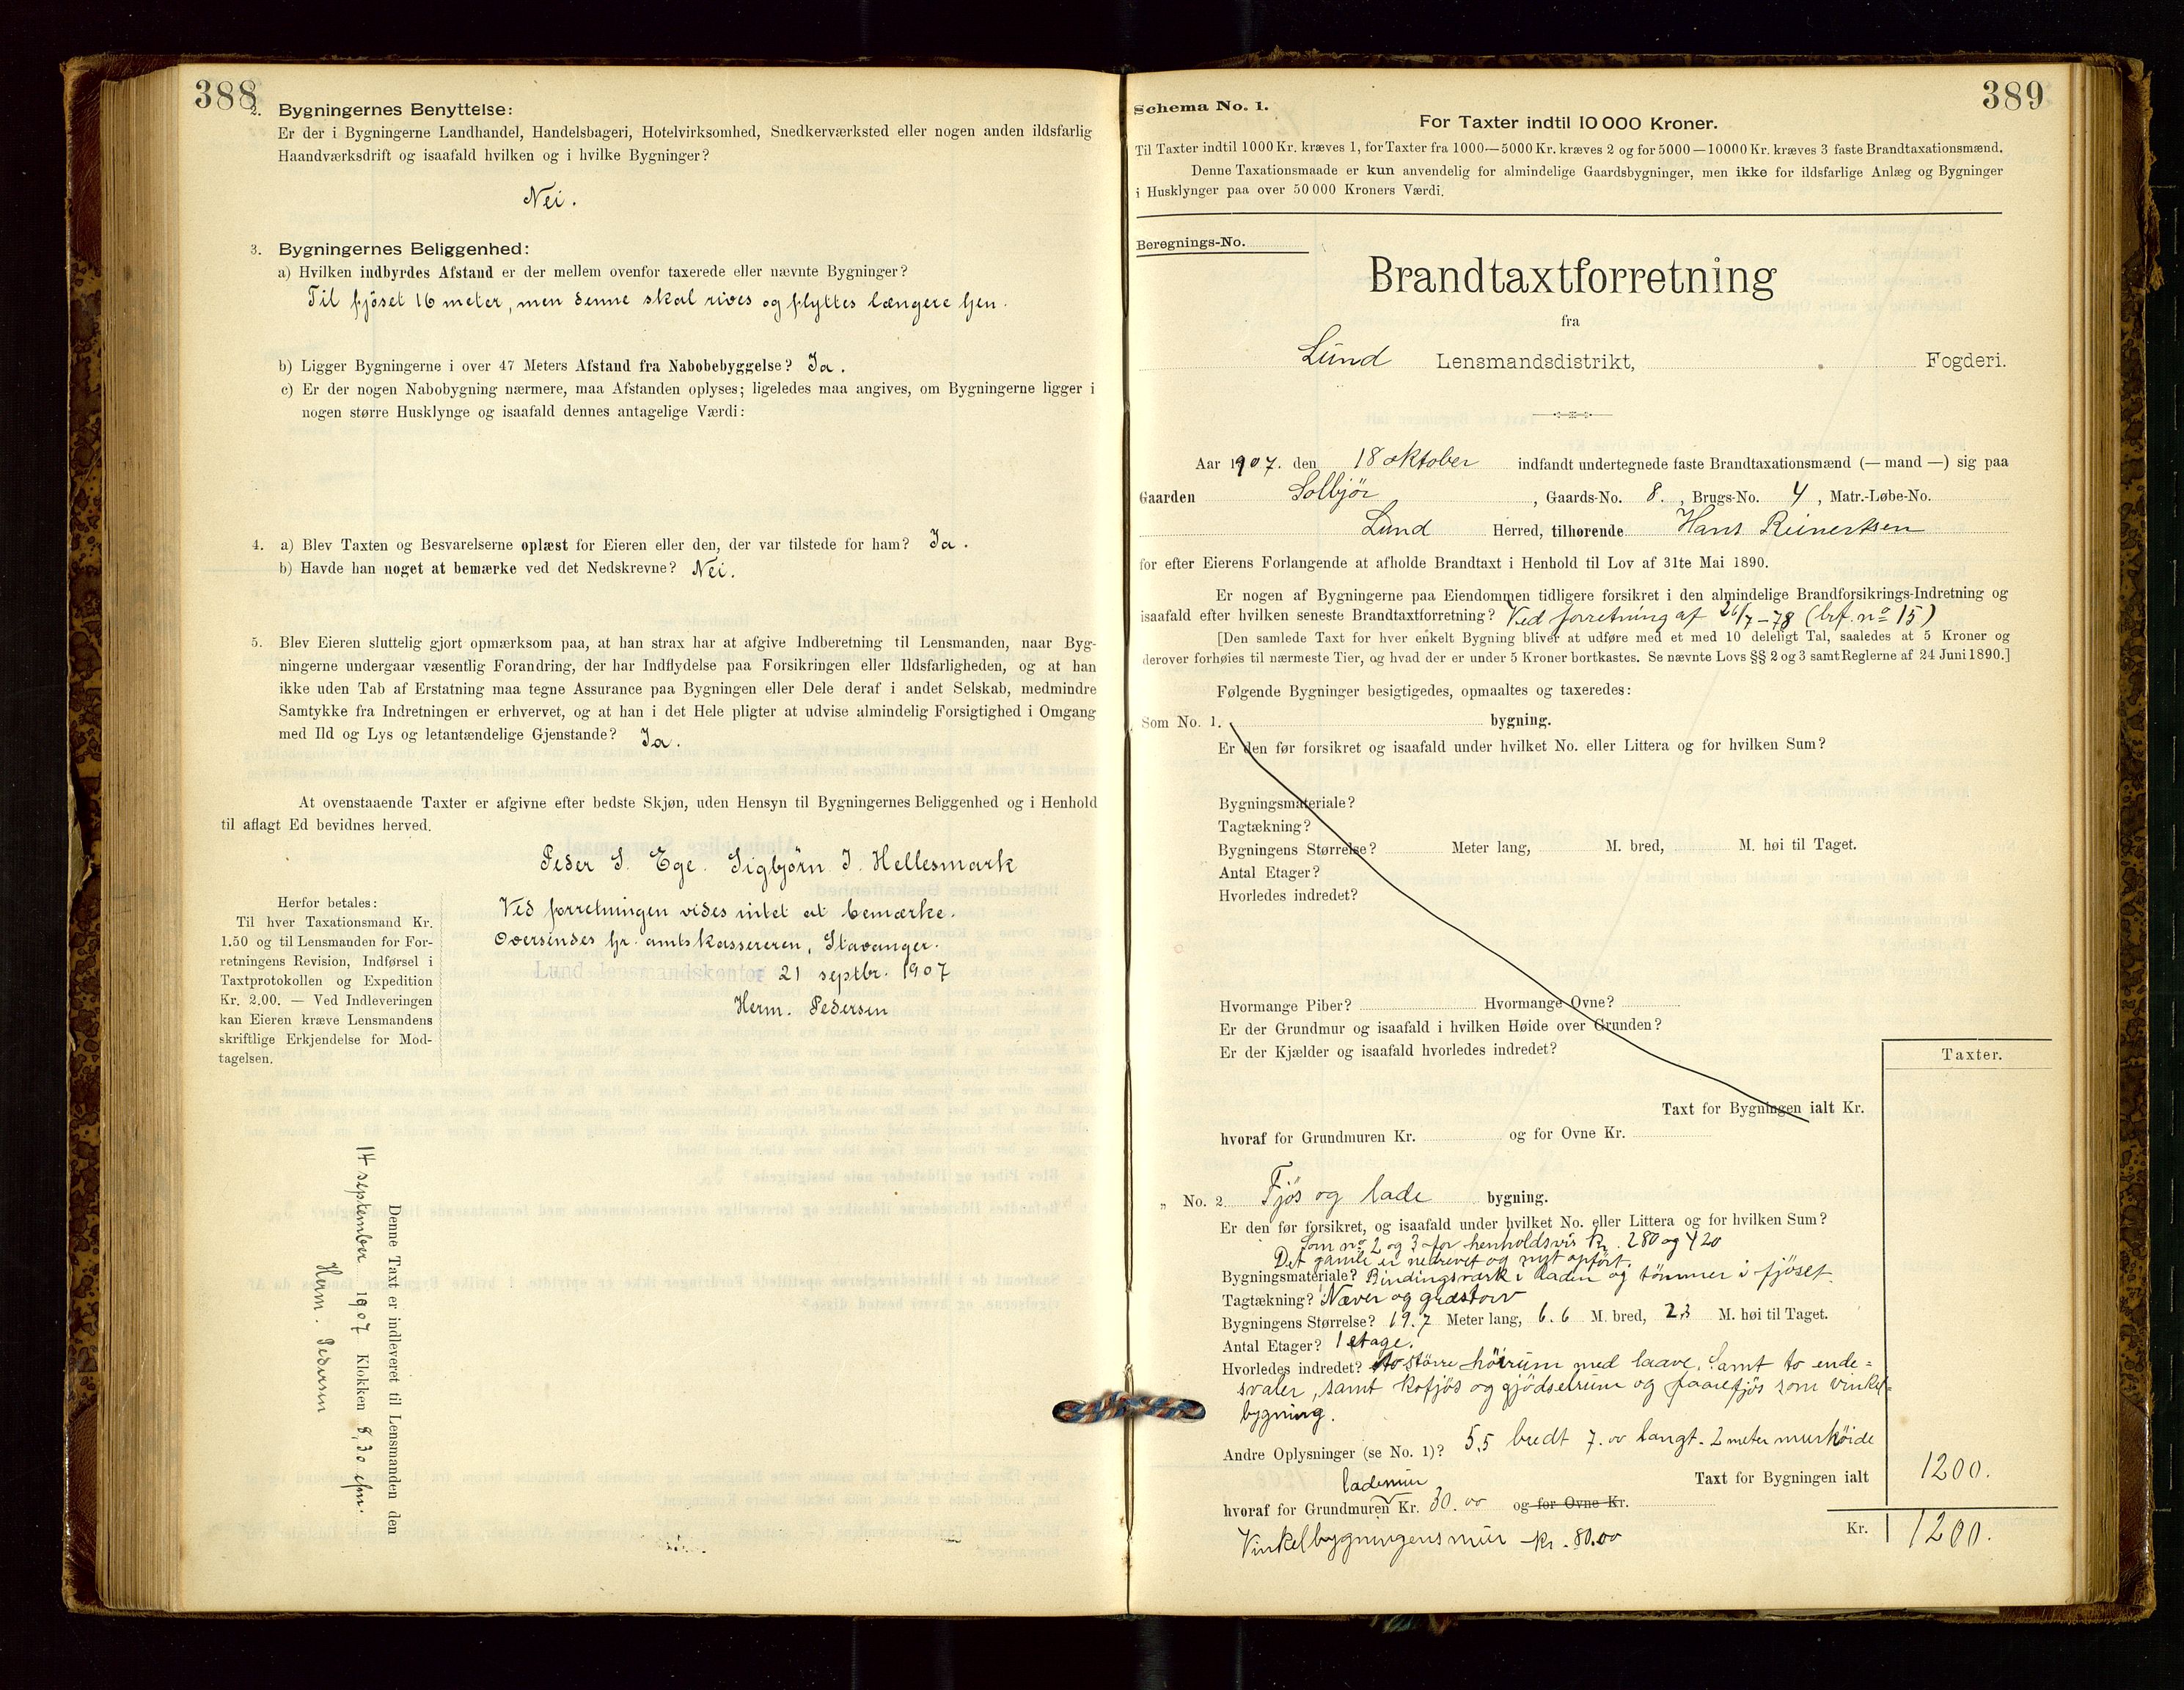 388
2. Bygningernes Benyttelse:
Er der i Bygningerne Landhandel, Handelsbageri, Hotelvirksomhed, Snedkerværksted eller nogen anden ildsfarlig
Haandværksdrift og isaafald hvilken og i hvilke Bygninger?
Nei.
3. Bygningernes Beliggenhed:
a) Hvilken indbyrdes Afstand er der mellem ovenfor taxerede eller nævnte Bygninger?
Til fjöset 16 meter, men denne skal rives og flyttes længere hen.
b) Ligger Bygningerne i over 47 Meters Afstand fra Nabobebyggelse? Ja.
c) Er der nogen Nabobygning nærmere, maa Afstanden oplyses; ligeledes maa angives, om Bygningerne ligger i
nogen større Husklynge og isaafald dennes antagelige Værdi:
4. a) Blev Taxten og Besvarelserne oplæst for Eieren eller den, der var tilstede for ham? Ja.
b) Havde han noget at bemærke ved det Nedskrevne? Nei.
5. Blev Eieren sluttelig gjort opmærksom paa, at han strax har at afgive Indberetning til Lensmanden, naar Byg-
ningerne undergaar væsentlig Forandring, der har Indflydelse paa Forsikringen eller Ildsfarligheden, og at han
ikke uden Tab af Erstatning maa tegne Assurance paa Bygningen eller Dele deraf i andet Selskab, medmindre
Samtykke fra Indretningen er erhvervet, og at han i det Hele pligter at udvise almindelig Forsigtighed i Omgang
med Ild og Lys og letantændelige Gjenstande? Ja.
At ovenstaaende Taxter er afgivne efter bedste Skjøn, uden Hensyn til Bygningernes Beliggenhed og i Henhold
til aflagt Ed bevidnes herved.
Peder S. Ege. Sigbjörn J. Hellesmark
Ved forretningen vides intet at bemærke.
Oversendes hr. amtskassereren, Stavanger.
Lund lensmandskontor 21 septbr. 1907
Herm. Pedersen
Herfor betales:
Til hver Taxationsmand Kr.
1.50 og til Lensmanden for For-
retningens Revision, Indførsel i
Taxtprotokollen og Expedition
Kr. 2.00. — Ved Indleveringen
kan Eieren kræve Lensmandens
skriftlige Erkjendelse for Mod-
tagelsen.
Denne Taxt er indleveret til Lensmanden den
14 september 1907 Klokken 8,30 efm.
Herm. Pedersen
389
Schema No. 1.
For Taxter indtil 10 000 Kroner.
Til Taxter indtil 1000 Kr. kræves 1, for Taxter fra 1000—5000 Kr. kræves 2 og for 5000—10000 Kr. kræves 3 faste Brandtaxationsmænd.
Denne Taxationsmaade er kun anvendelig for almindelige Gaardsbygninger, men ikke for ildsfarlige Anlæg og Bygninger
i Husklynger paa over 50 000 Kroners Værdi.
Beregnings-No.
Brandtaxtforretning
fra
Lund Lensmandsdistrikt, Fogderi.
Aar 1907. den 18 oktober indfandt undertegnede faste Brandtaxationsmænd (— mand —) sig paa
Gaarden Solbjör, Gaards-No. 8., Brugs-No. 4, Matr.-Løbe-No.
Lund Herred, tilhørende Hans Reinertsen
for efter Eierens Forlangende at afholde Brandtaxt i Henhold til Lov af 31te Mai 1890.
Er nogen af Bygningerne paa Eiendommen tidligere forsikret i den almindelige Brandforsikrings-Indretning og
isaafald efter hvilken seneste Brandtaxtforretning? Ved forretning af 26/7 - 78 (brf. no 15)
[Den samlede Taxt for hver enkelt Bygning bliver at udføre med et med 10 deleligt Tal, saaledes at 5 Kroner og
derover forhøies til nærmeste Tier, og hvad der er under 5 Kroner bortkastes. Se nævnte Lovs §§ 2 og 3 samt Reglerne af 24 Juni 1890.]
Følgende Bygninger besigtigedes, opmaaltes og taxeredes:
Som No. 1. bygning.
Er den før forsikret og isaafald under hvilket No. eller Littera og for hvilken Sum?
Bygningsmateriale?
Tagtækning?
Bygningens Størrelse? Meter lang, M. bred, M. høi til Taget.
Antal Etager?
Hvorledes indredet?
Hvormange Piber? Hvormange Ovne?
Er der Grundmur og isaafald i hvilken Høide over Grunden?
Er der Kjælder og isaafald hvorledes indredet?
Taxter.
Taxt for Bygningen ialt Kr.
hvoraf for Grundmuren Kr. og for Ovne Kr.
„ No. 2 Fjös og lade bygning.
Er den før forsikret, og isaafald under hvilket No. eller Littera og for hvilken Sum?
Som no 2 og 3 for henholdsvis Kr. 280 og 420
Det gamle er nedrevet og nyt opfört.
Bygningsmateriale? Bindingsværk i laden og tömmer i fjöset.
Tagtækning? Næver og græstorv
Bygningens Størrelse? 19.7 Meter lang, 6.6 M. bred, 2.3 M. høi til Taget.
Antal Etager? 1 etage.
Hvorledes indredet? to större höirum med laave. Samt to ende=
svaler, samt kofjös og gjödselrum og faarefjös som vinkel=
bygning.
Andre Oplysninger (se No. 1)? 5.5 bredt 7.00 langt. 2 meter murhöide
Taxt for Bygningen ialt 1200.
lademur
hvoraf for Grundmuren Kr. 30.00 og for Ovne Kr.
Kr. 1200.
Vinkelbygningens mur kr. 80.00